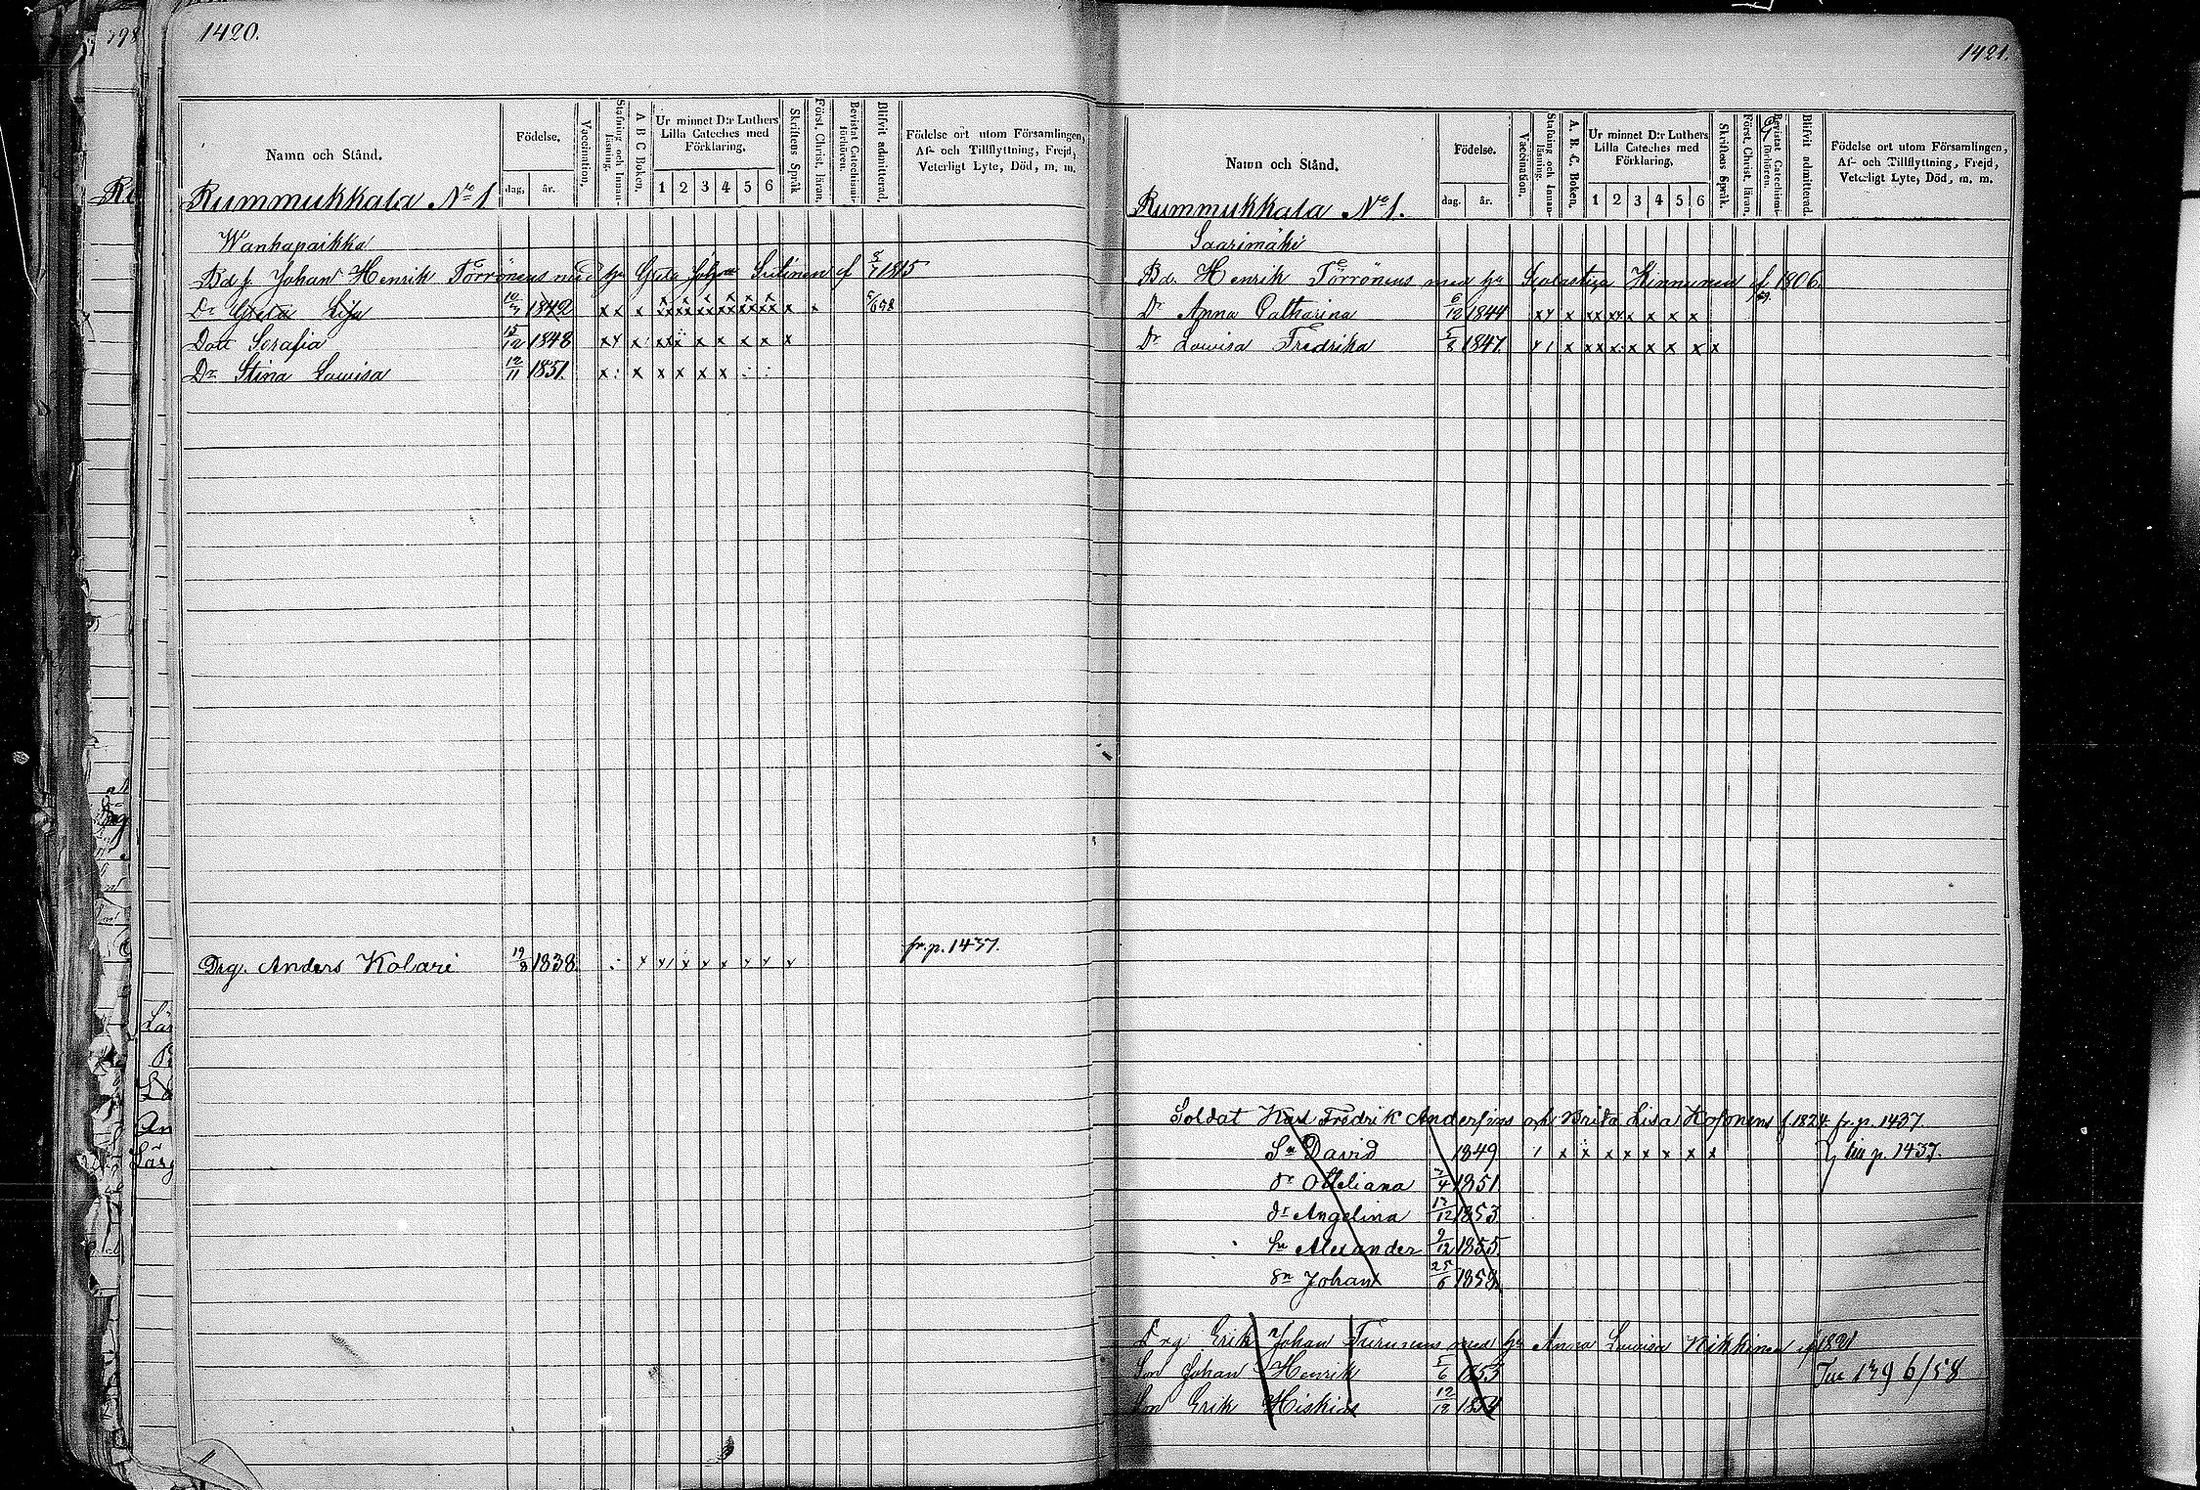 1420.
Namn och Stånd.
Födelse.
dag. år.
Vaccination.
Stafning och Innanläsning.
A B C Boken.
Ur minnet D:r Luthers Lilla Cateches med Förklaring.
1 2 3 4 5 6
Skriftens Språk.
Först. Christ. läran.
Bevistat Catechismiförhören.
Blifvit admitterad.
Födelse ort utom Församlingen, Af- och Tillflyttning, Frejd, Veterligt Lyte, Död, m. m.
Rummukkala No 1
Wanhapaikka
Bdf. Johan Henrik Törrönens med hu Greta Sutinen f 1815
Dr Greta Lisa 1842 x x x x x x x x x x x
Dott Serafia 15/10 1848 x x x x x x x x x
Dr Stina Lowisa 12/11 1851. x : x x x x x : :
fr. p. 1437.
Drg. Anders Kolari 19/8 1838. : x x x x x x x x
1421.
Namn och Stånd.
Födelse.
dag. år.
Vaccination.
Stafning och Innanläsning.
A. B. C. Boken.
Ur minnet D:r Luthers Lilla Cateches med Förklaring.
1 2 3 4 5 6
Skriftens Språk.
Först. Christ. läran.
Bevistat Catechismiförhören.
Blifvit admitterad.
Födelse ort utom Församlingen, Af- och Tillflyttning, Frejd, Veterligt Lyte, Död, m. m.
Rummukkala No 1.
Saarimäki
Bd. Henrik Törrönens med hu Scolastica Kinnunen f 1806.
Dr Anna Catharina 6/12 1844 x x x x x x x x x
Dr Lowisa Fredrika 5/8 1847. x x x x x x x x x
Soldat Karl Fredrik Anders och Brita Lisa Kosonens f. 1824. fr. p. 1437.
Sn David 1849 x x x x x x x x till p. 1437.
dr Otteliana 3/4 1851
dr Angelina 13/12 1853.
Sn Alexander 9/12 1855.
Sn Johan 25/6 1858.
Drg Erik Johan Turunens med hu Anna Lowisa Nikkinen f 1821
Son Johan Henrik 5/6 1853
Son Erik Hiskias 12/12 1854